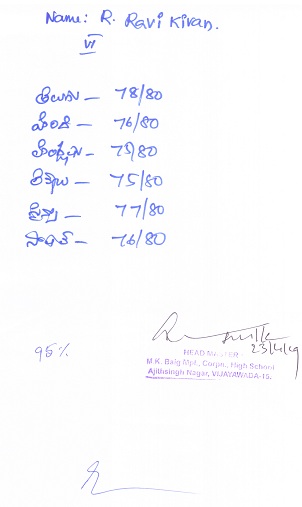 Name: R. Ravi Kiran.
VI
తెలుగు – 78/80
హిందీ – 76/80
ఇంగ్లీషు – 75/80
లెక్కలు – 75/80
సైన్సు – 77/80
సోషల్ – 76/80
23/4/19
HEAD MASTER
M.K. Baig Mpl., Corpn., High School
Ajithsingh Nagar, VIJAYAWADA-15.
95%